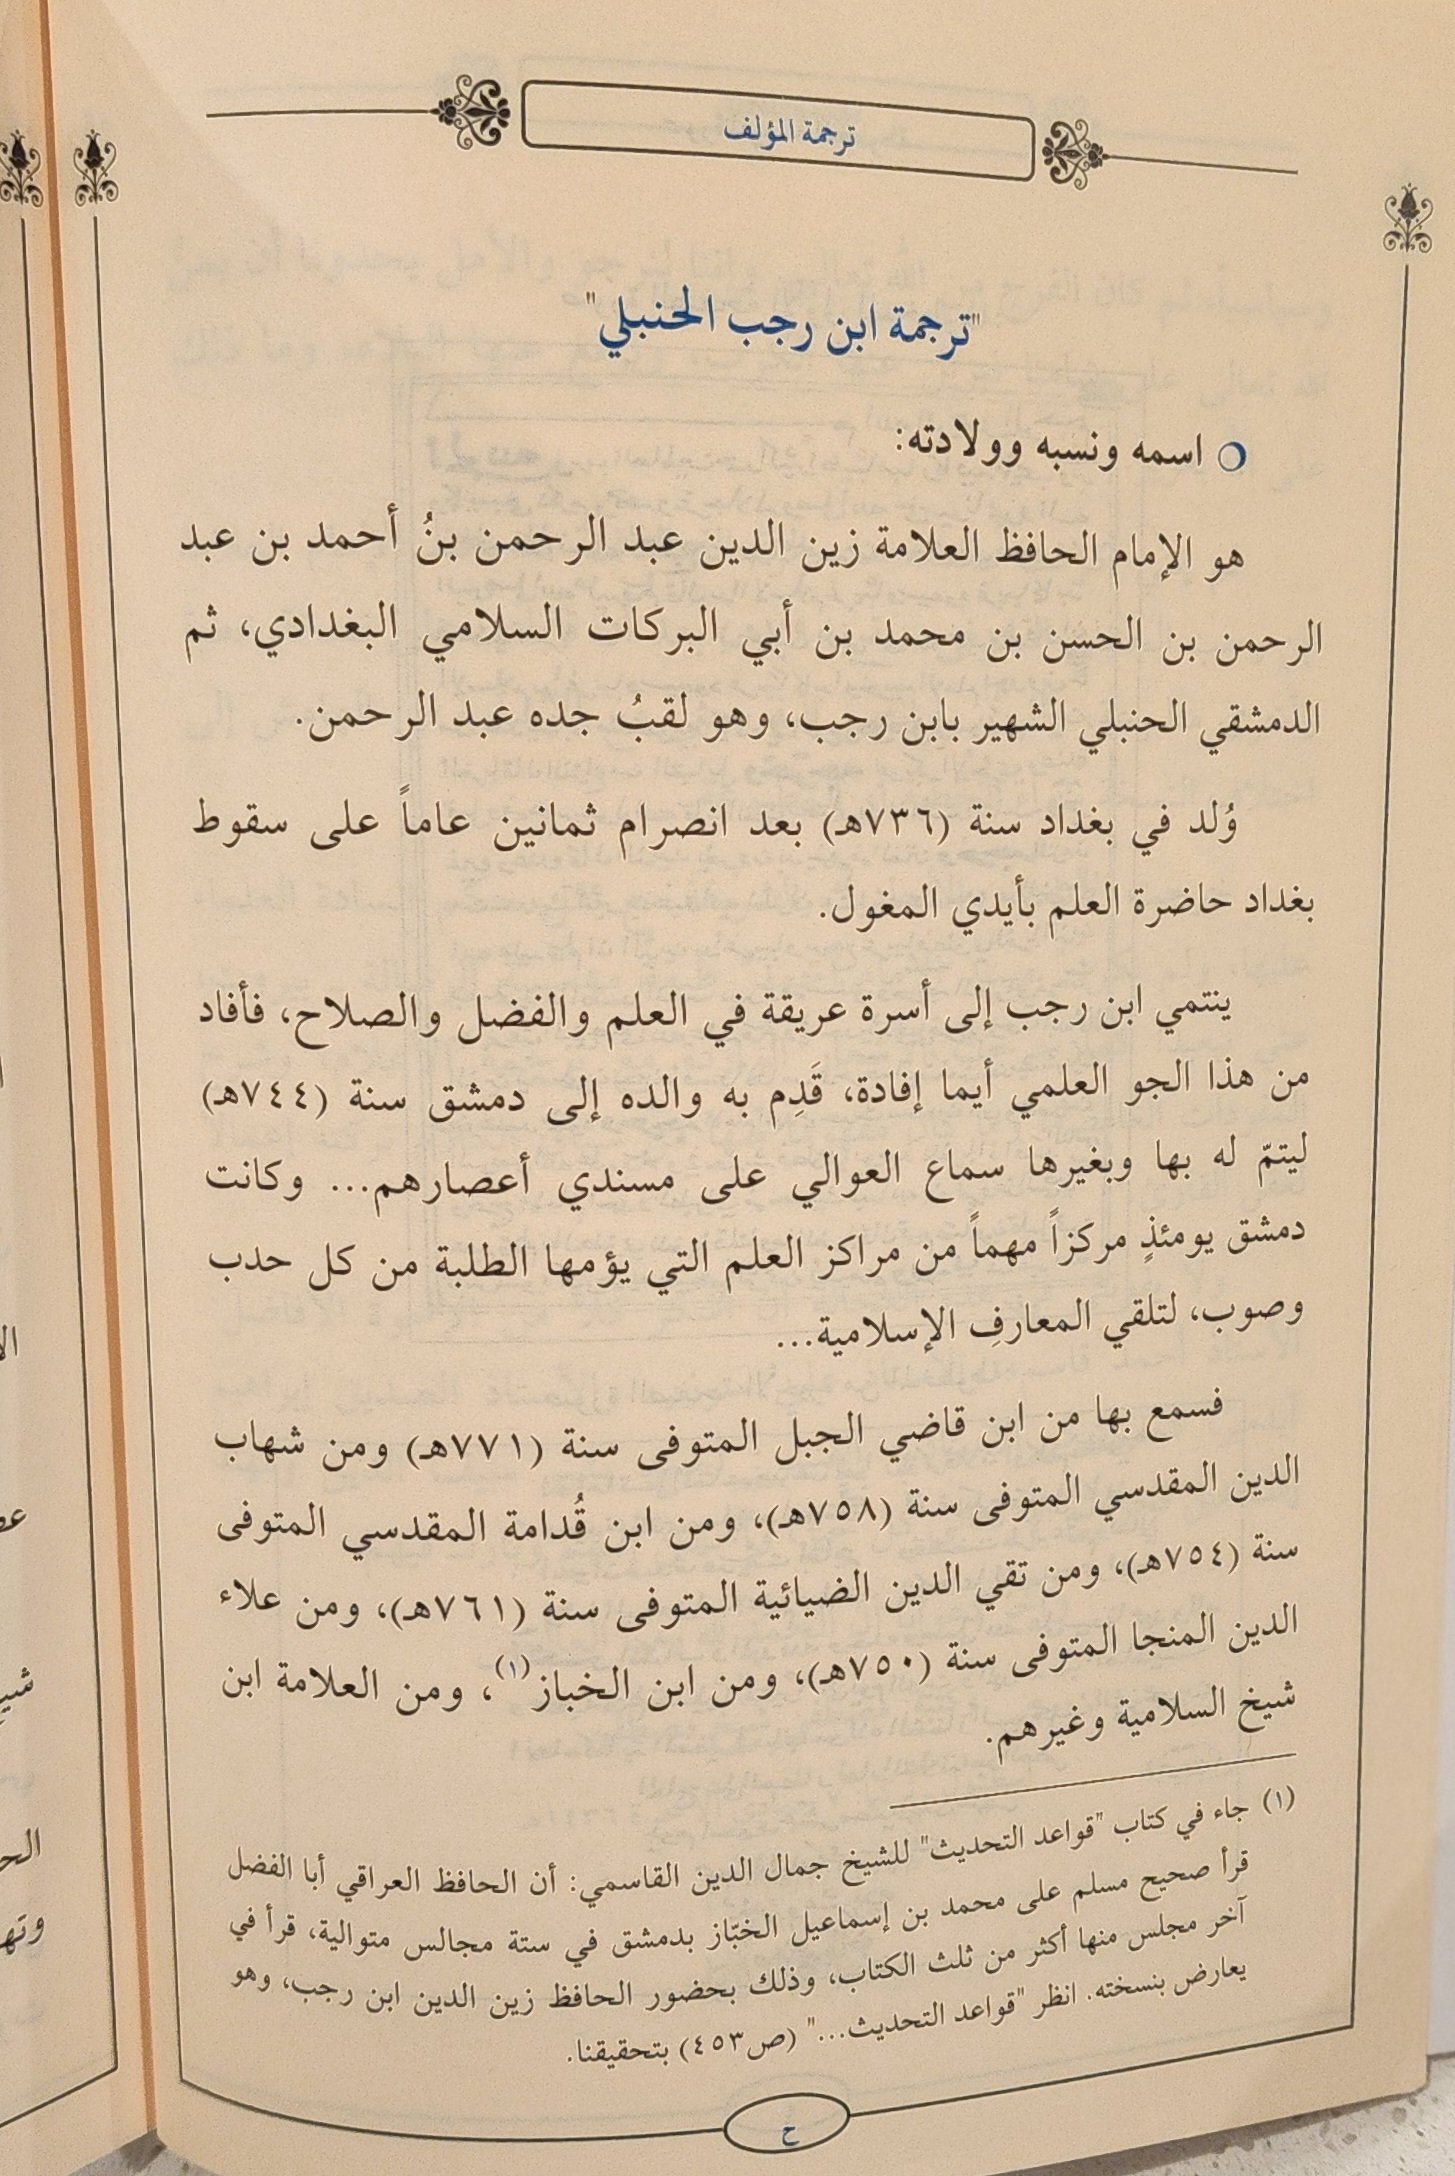 ترجمة المؤلف
"ترجمة ابن رجب الحنبلي"
اسمه ونسبه وولادته:
هو الإمام الحافظ العلامة زين الدين عبد الرحمن بنُ أحمد بن عبد
الرحمن بن الحسن بن محمد بن أبي البركات السلامي البغدادي، ثم
الدمشقي الحنبلي الشهير بابن رجب، وهو لقبُ جده عبد الرحمن.
وُلد في بغداد سنة (٧٣٦هـ) بعد انصرام ثمانين عاماً على سقوط
بغداد حاضرة العلم بأيدي المغول.
ينتمي ابن رجب إلى أسرة عريقة في العلم والفضل والصلاح، فأفاد
من هذا الجو العلمي أيما إفادة، قَدِم به والده إلى دمشق سنة (٧٤٤هـ)
ليتمّ له بها وبغيرها سماع العوالي على مسندي أعصارهم... وكانت
دمشق يومئذٍ مركزاً مهماً من مراكز العلم التي يؤمها الطلبة من كل حدب
وصوب، لتلقي المعارفِ الإسلامية...
فسمع بها من ابن قاضي الجبل المتوفى سنة (٧٧١هـ) ومن شهاب
الدين المقدسي المتوفى سنة (٧٥٨هـ)، ومن ابن قُدامة المقدسي المتوفى
سنة (٧٥٤هـ)، ومن تقي الدين الضيائية المتوفى سنة (٧٦١هـ)، ومن علاء
الدين المنجا المتوفى سنة (٧٥٠هـ)، ومن ابن الخباز(١)، ومن العلامة ابن
شيخ السلامية وغيرهم.
(١) جاء في كتاب "قواعد التحديث" للشيخ جمال الدين القاسمي: أن الحافظ العراقي أبا الفضل
قرأ صحيح مسلم على محمد بن إسماعيل الخبّاز بدمشق في ستة مجالس متوالية، قرأ في
آخر مجلس منها أكثر من ثلث الكتاب، وذلك بحضور الحافظ زين الدين ابن رجب، وهو
يعارض بنسخته. انظر "قواعد التحديث..." (ص٤٥٣) بتحقيقنا.
ح